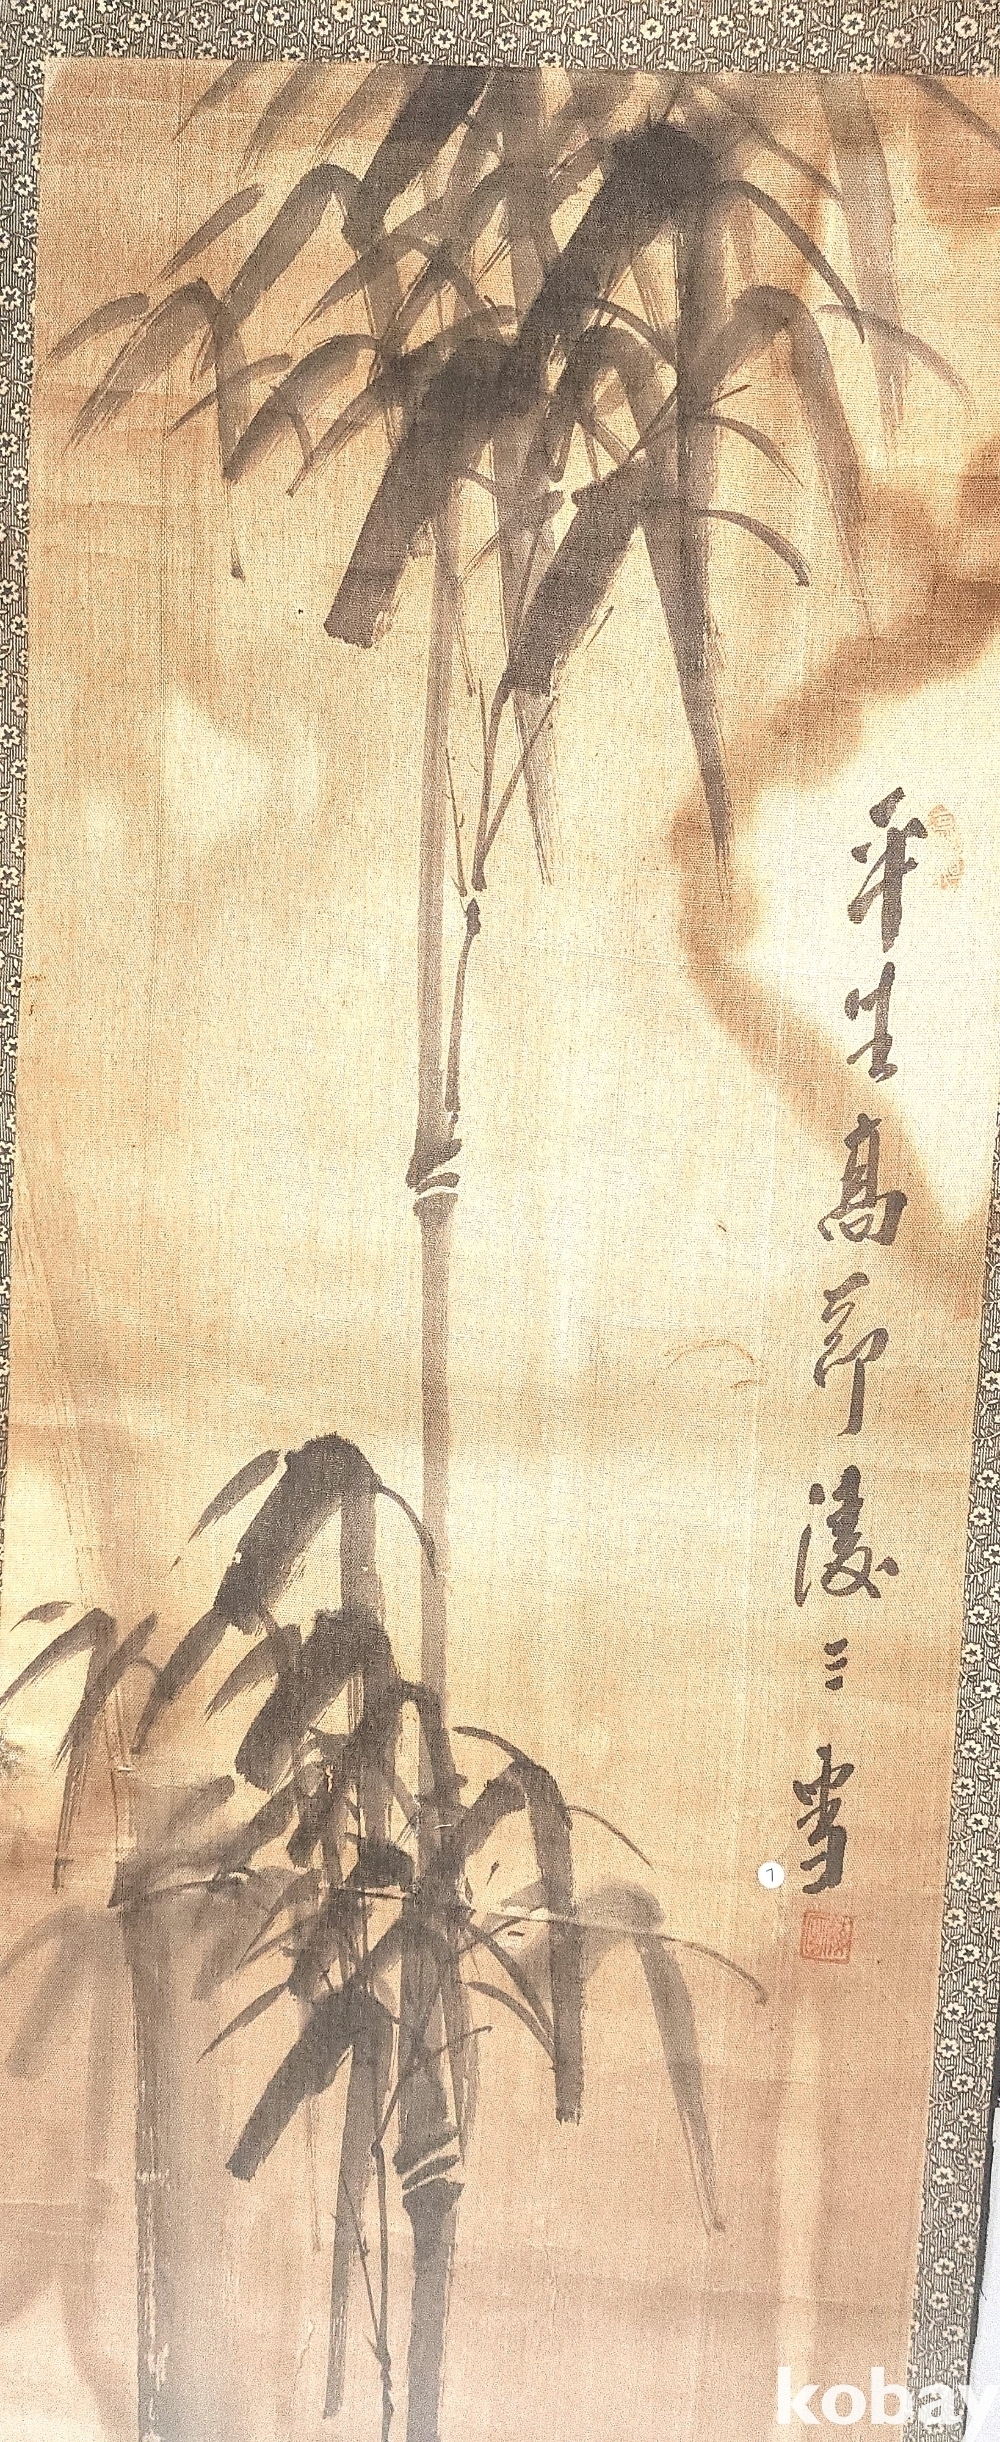 平生高節凌三雪
7
kobay